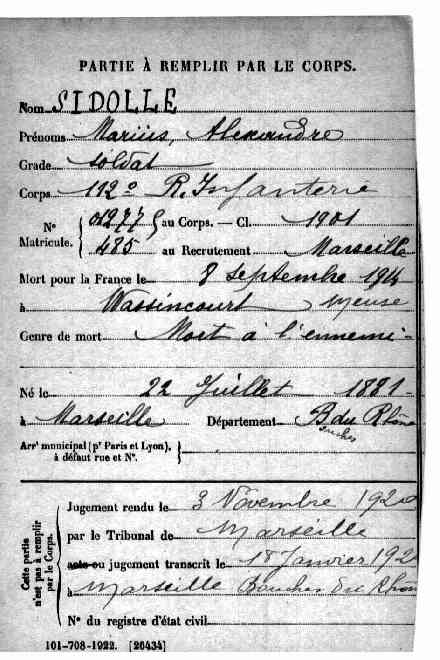 PARTIE À REMPLIR PAR LE CORPS.
Nom SIDOLLE
Prénoms Marius, Alexandre
Grade soldat
Corps 112e R. Infanterie
N° Matricule. { 01277 au Corps. — Cl. 1901
485 au Recrutement Marseille
Mort pour la France le 8 Septembre 1914
à Wassincourt, Meuse
Genre de mort Mort à l'ennemi
Né le 22 Juillet 1881
à Marseille Département B du Rhône
ouches
Arr' municipal (p' Paris et Lyon), à défaut rue et N°. }
Cette partie n'est pas à remplir par le Corps.
Jugement rendu le 3 Novembre 1920
par le Tribunal de Marseille
acte ou jugement transcrit le 18 Janvier 192
à Marseille Bouches du Rhône
N° du registre d'état civil
101-708-1922. [26434]